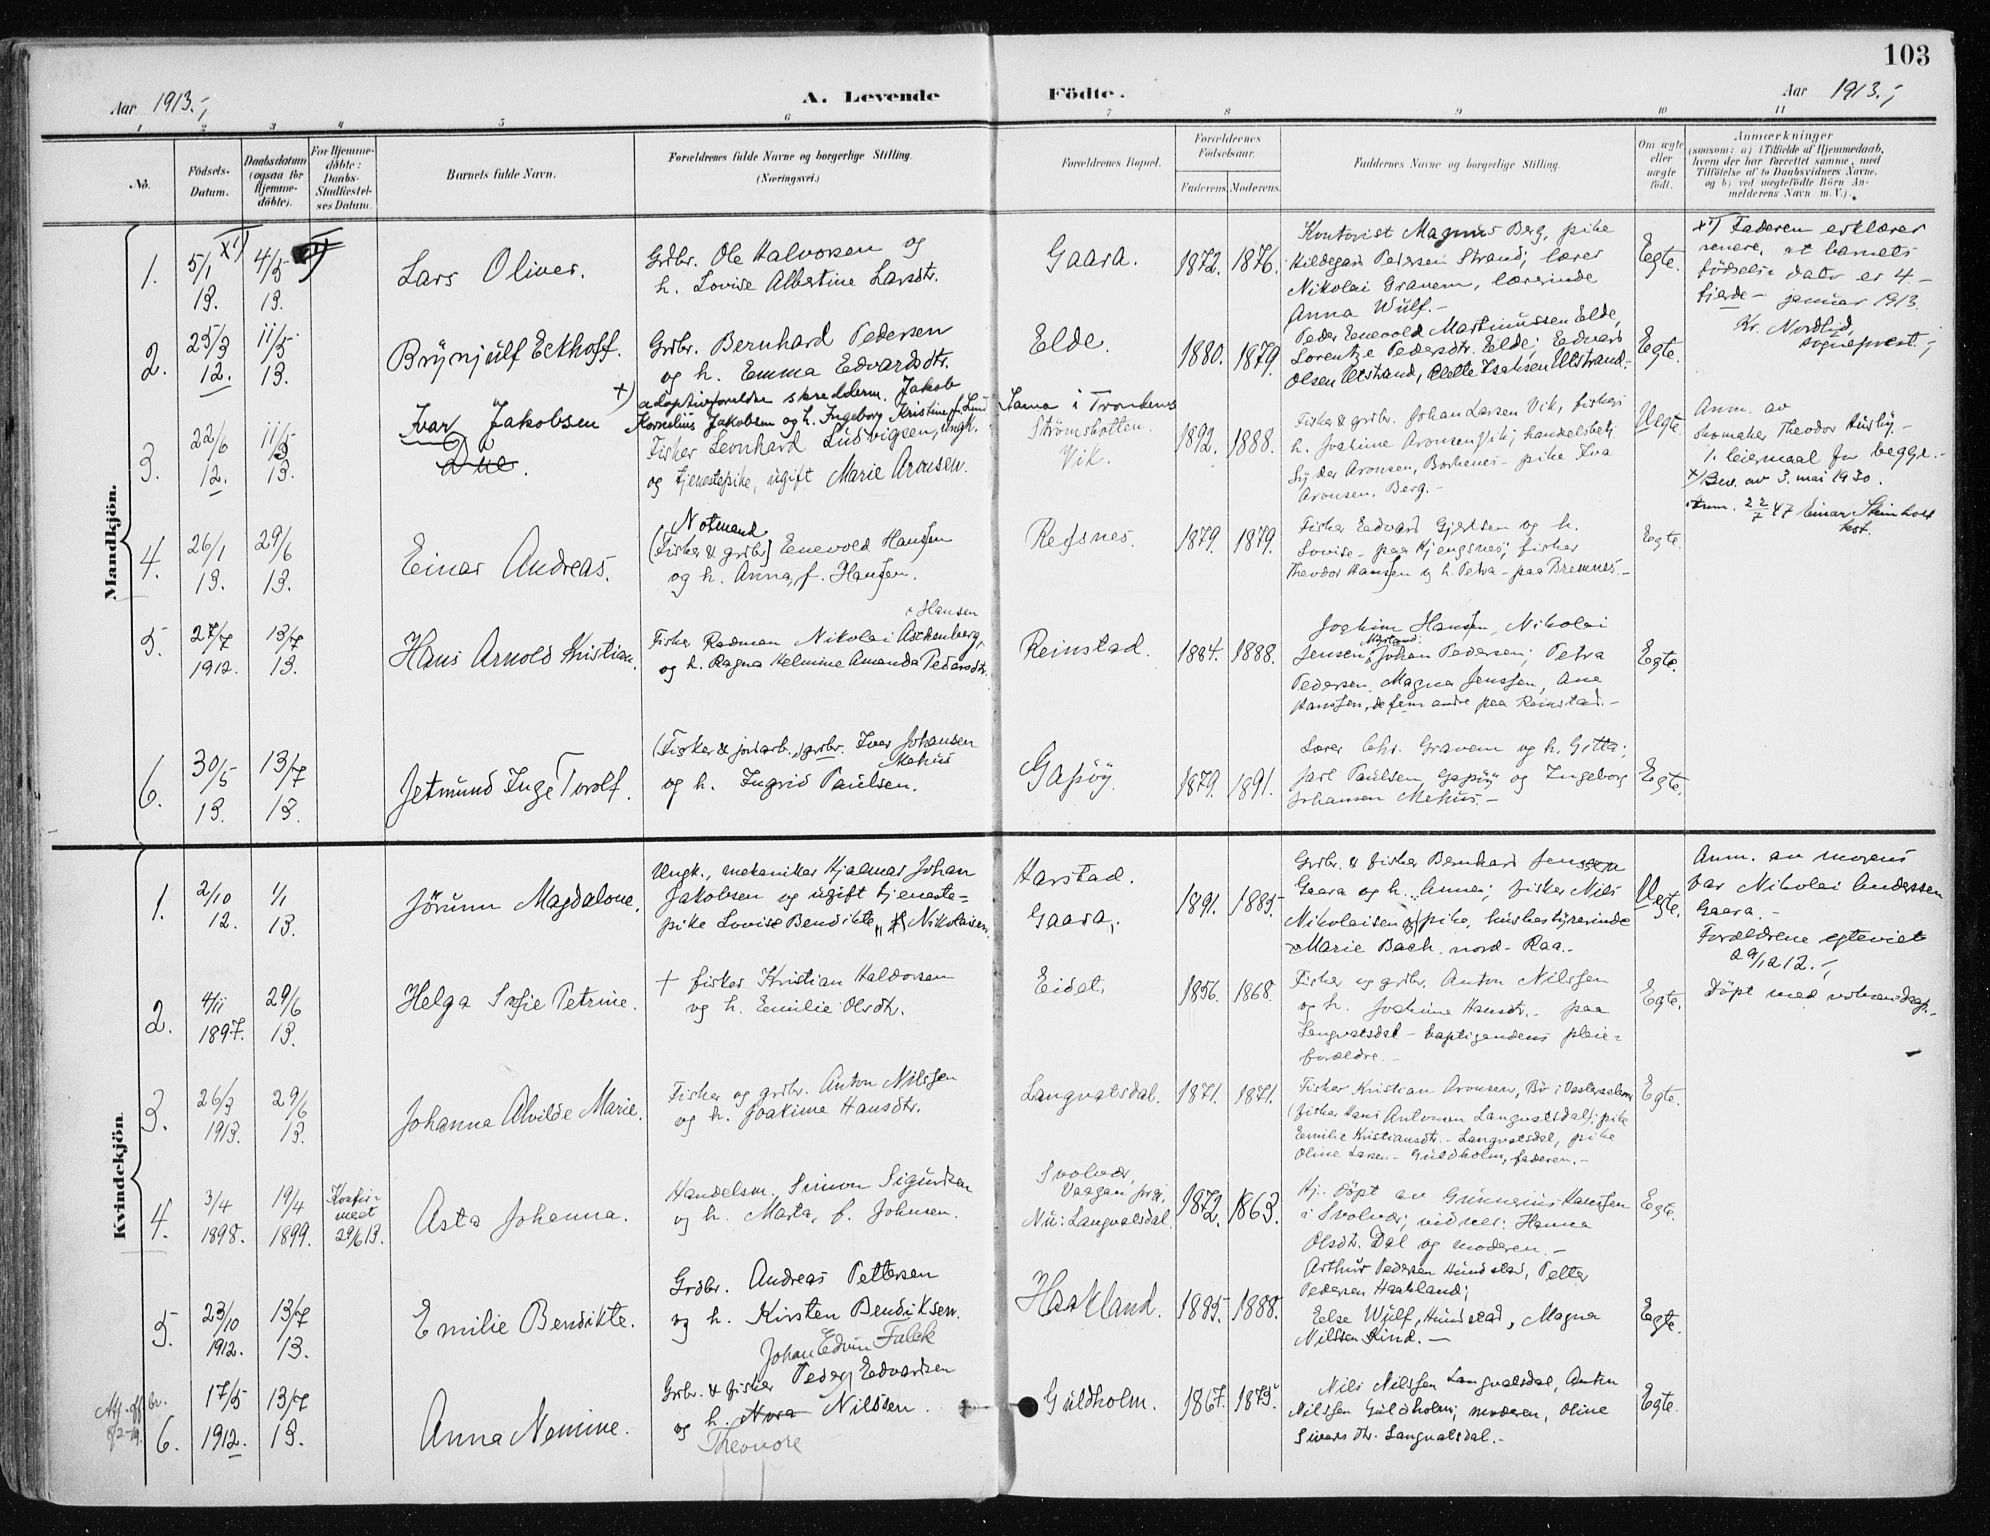 103
Aar 1913.-,
A. Levende Födte.
Aar 1913.-,
1 2 3 4 5 6 7 8 9 10 11
No.
Födsels-
Datum.
Daabsdatum
(ogsaa for
Hjemme-
döbte).
For Hjemme-
döbte:
Daabs-
Stadfæstel-
ses Datum.
Barnets fulde Navn.
Forældrenes fulde Navne og borgerlige Stilling.
(Næringsvei.)
Forældrenes Bopæl.
Forældrenes
Födselsaar.
Faderens. Moderens.
Faddernes Navne og borgerlige Stilling.
Om ægte
eller
uægte
födt.
Anmærkninger
(saasom: a) i Tilfælde af Hjemmedaab,
hvem der har forrettet samme, med
Tilföielse af to Daabsvidners Navne,
og b) ved uægtefödte Börn An-
melderens Navn m. V.).
Mandkjön.
1.
5/1 x1)
13.
4/5
13.
x1)
Lars Oliver.
Grdbr. Ole Halvorsen og
h. Lovise Albertine Larsdtr.
Gaara.
1872. 1876.
Kontorist Magnus Berg, pike
Hildegard Pedersen Strand; lærer
Nikolai Gravem, lærerinde
Anna Wulf.-
Egte.
x1) Faderen erklærer
senere, at barnets
födselsdato er 4.-
fjerde- januar 1913
Kr. Nordlid,
sogneprest.-,
2.
25/3
12.
11/5
13.
Brynjulf Eckhoff.
Grbr. Bernhard Pedersen
og h. Emma Edvardsdtr.
Elde.
1880. 1879.
Peder Enevold Martinussen Elde,
Lorentze Pedersdtr. Elde; Edvard
Olsen Utstrand, Elette Isaksen Utstrand.-
Egte.
3.
22/6
12.
11/5
13.
Ivar Jakobsen
Due.
+) adoptivforeldre skredderm. Jakob
Kornelius Jakobsen og h. Ingeborg Kristine f. Lund
Fisker Leonhard Ludvigsen, ungk.
og tjenestepike, ugift Marie Aronsen.
Sama i Trondenes
Strömsbotten.
Vik.
1892. 1888.
Fisker & grbr. Johan Larsen Vik, fiskers
h. Joakime Aronsen Vik; handelsbetj.
Aronsen, Borkenes- pike Eva
Aronsen, Berg.-
Uegte.
Anm. av
skomaker Theodor Aursby.-
1. leiermaal for begge.-
+) Bev. av 3. mai 1930.
Anm. 22/7 47 Einar Steinholt
kst.
4.
26/1
13.
29/6
13.
Einar Andreas.
Notmand
(Fisker & grbr) Enevold Hansen
og h. Anna, f. Hansen.
Refsnes.
1879. 1879.
Fisker Edvard Gjertsen og h.
Lovise- paa Kjengsnes; fisker
Theodor Hansen og h. Petra- paa Bremnes.-
Egte.
5.
27/7
1912.
13/7
13.
Hans Arnold Kristian.
Hansen
Fisker Redman Nikolai Aschenberg,
og h. Ragna Helmine Amanda Pedersdtr.
Reinstad.
1884. 1888.
Joakim Hansen, Nikolai
Jensen, Johan Pedersen; Petra
Pedersen, Magna Jenssen, Ane
Hanssen, de fem andre paa Reinstad.-
Egte.
6.
30/5
13.
13/7
13.
Jetmund Inge Torolf.
(Fisker & jordarb.,) grbr. Ivar Johansen
Mehus
og h. Ingrid Paulsen.
Gapöy.
1879. 1891.
Lærer Chr. Gravem og h. Gitta;
Jarl Paulsen, Gapöy og Ingeborg
Johansen Mehus.-
Egte.
Kvindekjön.
1.
2/10
12.
1/1
13.
Jörunn Magdalone.
Ungk., mekaniker Hjalmar Johan
Jakobsen og ugift tjeneste-
pike Lovise Bendikte Nikolaisen.
Harstad.
Gaara.
1891. 1885.
Grbr. & fisker Bernhard Jensen
Gaara og h. Anna; fisker Nils
Nikolaisen og pike, husbestyrerinde
Marie Bach, nord- Raa.-
Uegte.
Anm. av morens
far Nikolai Anderssen
Gaara.-
Forældrene egteviet
29/12 12.-,
2.
4/11
1897.
29/6
13.
Helga Sofie Petrine.
+ fisker Kristian Haldorsen
og h. Emilie Olsdtr.
Eidet.
1856. 1868.
Fisker og grbr. Anton Nilssen
og h. Joakime Hansdtr.- paa
Langvatsdal- baptigandens pleie-
forældre.-
Egte.
Döpt med
3.
26/3
1913.
29/6
13.
Johanna Alvilde Marie.
Fisker og grbr. Anton Nilssen
og h. Joakime Hansdtr.
Langvatsdal.
1871. 1871.
Fisker Kristian Aronsen, Bö i Vesteraalen
(fisker Hans Antonsen Langvatsdal); pike
Emilie Kristiansdtr.- Langvatsdal, pike
Oline Larsen- Guldholm, faderen.-
Egte.
4.
3/4
1898.
19/4
1899.
Konfir-
meet
29/6 13.
Asta Johanna.
Handelsm. Simon Sigurdsen
og h. Marta, f. Johnsen.
Svolvær,
Vaagan prgj.
Nu: Langvatsdal.
1872. 1863.
Hj. döpt av Gunnerius Hanssen
i Svolvær; vidner: Hanna
Olsdtr. Dal og moderen.-
Egte.
5.
23/10
1912.
13/7
13.
Emilie Bendikte.
Grdbr. Andreas Pettersen
og h. Kirsten Bendiksen.
Haakland.
1885. 1888.
Arthur Pedersen Hundstad, Petter
Pedersen Haakland;
Else Wulf, Hundstad, Magna
Nilssen Rind.-
Egte.
Att. off. br.
8/2-19.
6.
17/5
1912.
13/7
13.
Anna Nemine.
Johan Edvin Falck
Grbr. & fisker Peder Edvardsen
og h. Nora Nilssen.
Theonore
Guldholm.
1867. 1875.
Nils Nilssen Langvatsdal, Anton
Nilssen Guldholm; moderen, Oline
Sivertsdtr. Langvatsdal.-
Egte.